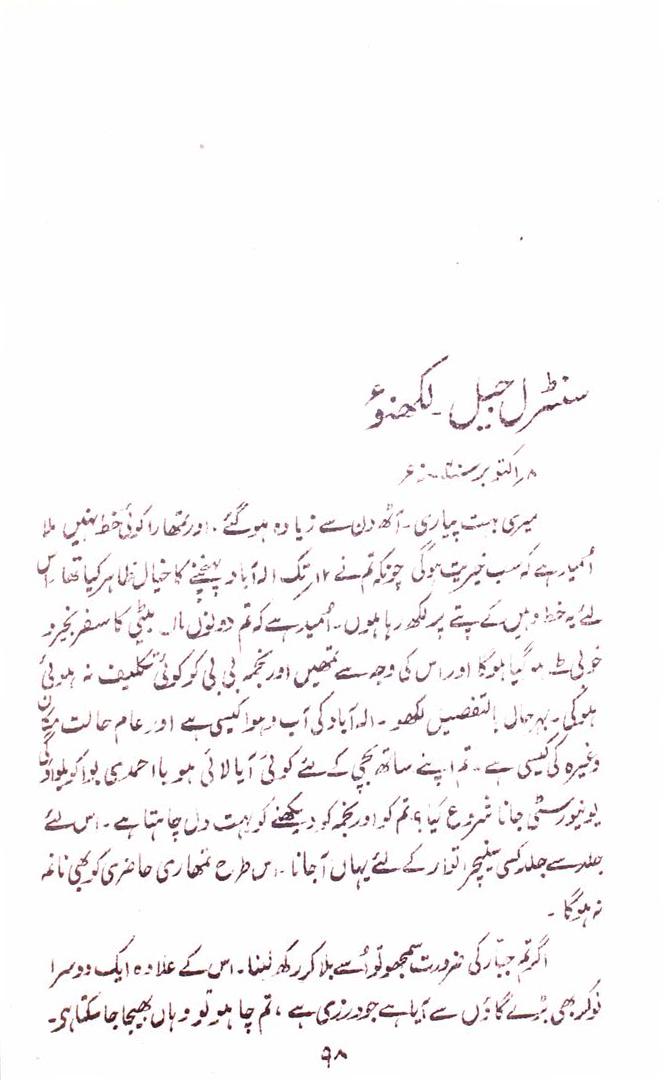 سنٹرل جیل۔ لکھنؤ
۸؍ اکتوبر
میری بہت پیاری۔ آٹھ دن سے زیادہ ہو گئے، اور تمھارا کوئی خط نہیں ملا
اُمید ہے کہ سب خیریت ہوگی چونکہ تم نے ۱۲ر تک الہ آباد پہنچنے کا خیال ظاہر کیا تھا اس
لئے یہ خط وہیں کے پتے پر لکھ رہا ہوں۔ اُمید ہے کہ تم دونوں ماں بیٹی کا سفر بخیر و
خوبی طے ہو گیا ہوگا اور اس کی وجہ سے تمھیں اور نجمہ بی بی کو کوئی تکلیف نہ ہوئی
ہوگی۔ بہرحال بالتفصیل لکھو۔ الہ آباد کی آب و ہوا کیسی ہے اور عام حالت مکان
وغیرہ کی کیسی ہے۔ تم اپنے ساتھ بچی کے لئے کوئی آیا لائی ہو یا احمدی بوا کو بلواؤ گی
یونیورسٹی جانا شروع کیا؟ تم کو اور نجمہ کو دیکھنے کو بہت دل چاہتا ہے۔ اس لئے
جلد سے جلد کسی سنیچر اتوار کے لئے یہاں آجانا۔ اس طرح تمھاری حاضری کو بھی ناغہ
نہ ہوگا۔
اگر تم جبّار کی ضرورت سمجھو تو اُسے بلا کر رکھ لینا۔ اس کے علاوہ ایک دوسرا
نوکر بھی بڑے گاؤں سے آیا ہے جو درزی ہے، تم چاہو تو وہاں بھیجا جا سکتا ہے۔
۹۸